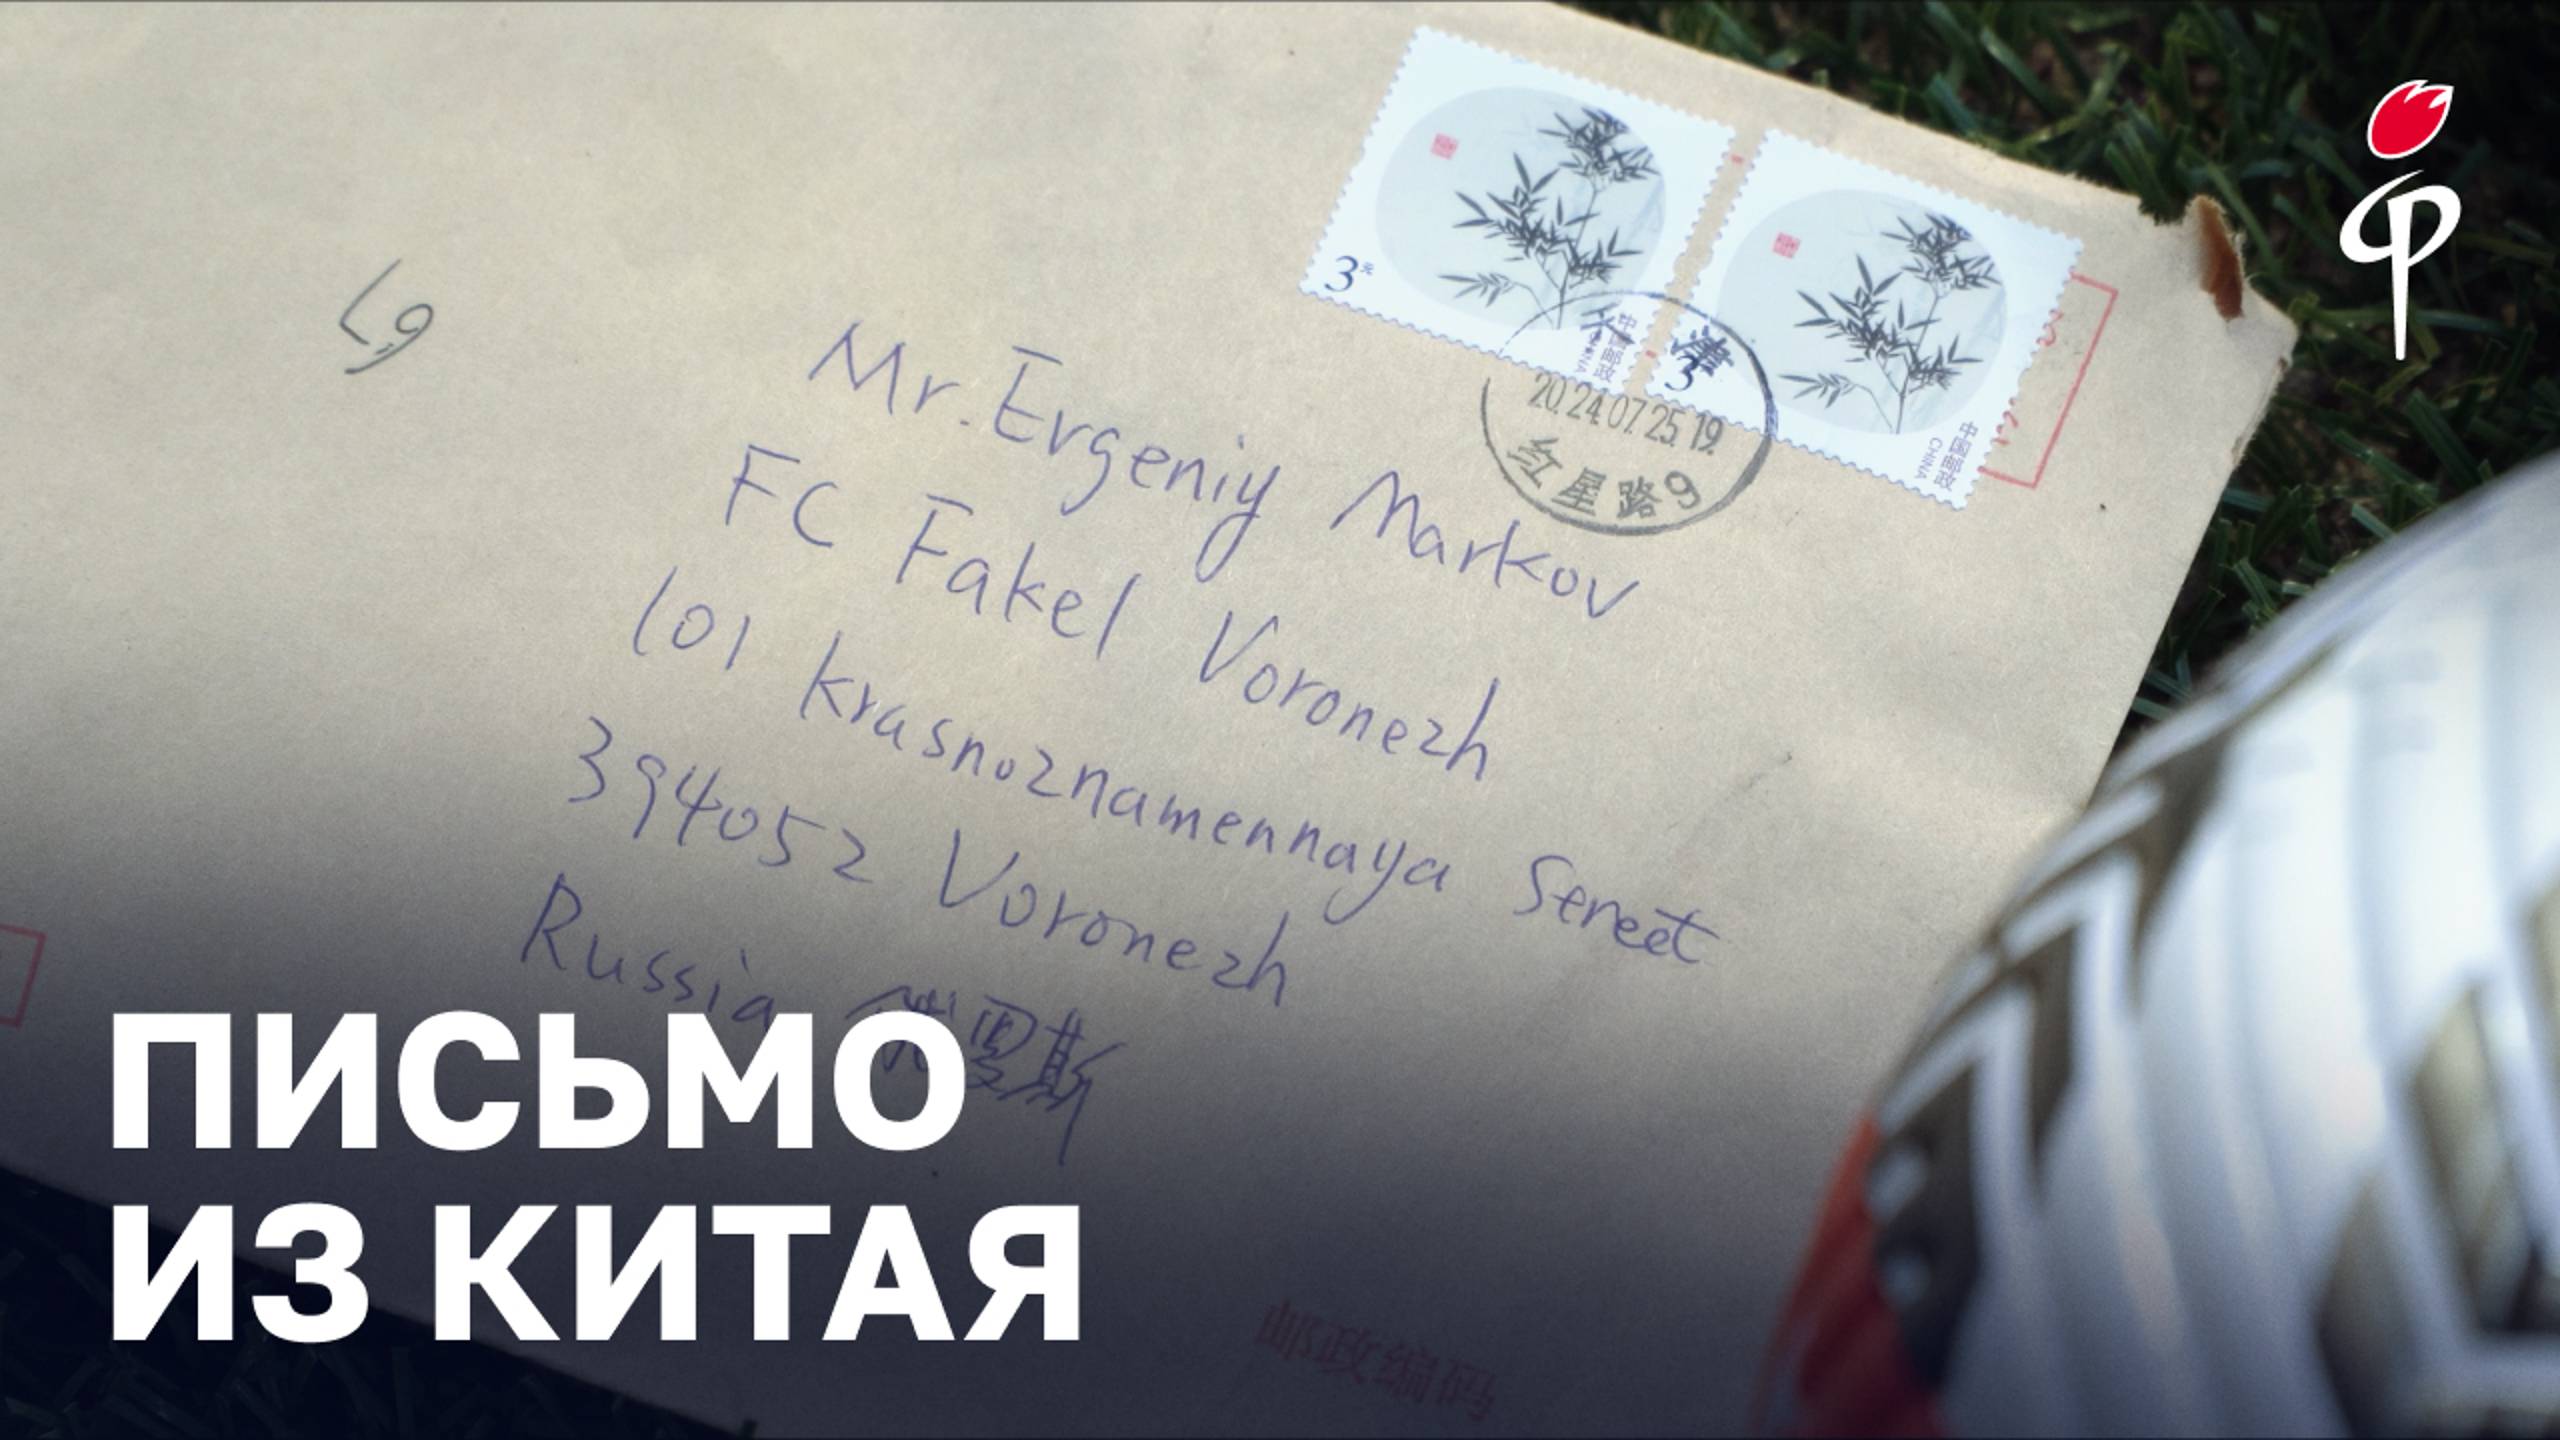 Mr. Evgeniy Markov
FC Fakel Voronezh
101 krasnoznamennaya Street
394052 Voronezh
Russia 俄罗斯
3元
中国邮政
CHINA
3
中国邮政
CHINA
天津
2024.07.25.19
红星路9
邮政编码
ПИСЬМО
ИЗ КИТАЯ